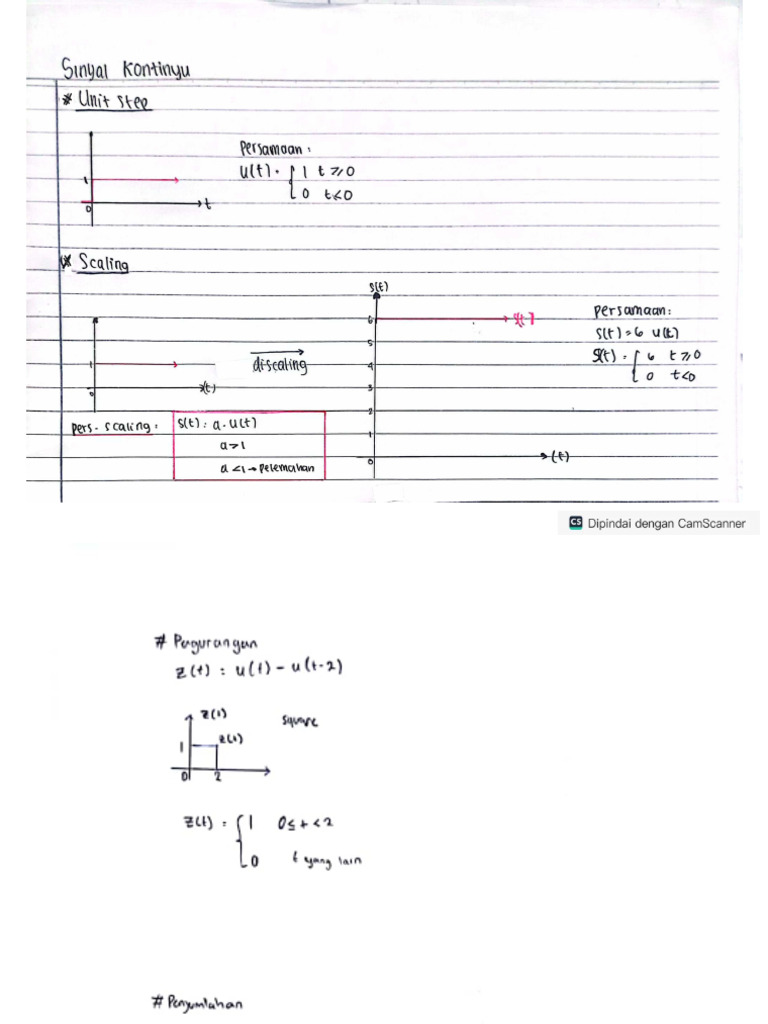 Sinyal Kontinyu
* Unit step
Persamaan :
u(t) = { 1 t ≥ 0
0 t < 0
1
0
t
* Scaling
s(t)
6
s(t)
5
4
3
2
1
0
(t)
Persamaan :
s(t) = 6 u(t)
s(t) = { 6 t ≥ 0
0 t < 0
1
0
(t)
discaling
pers. scaling :
s(t) : a . u(t)
a > 1
a < 1 → pelemahan
CS Dipindai dengan CamScanner
# Pengurangan
z(t) : u(t) - u(t-2)
z(t)
square
1
z(t)
0
2
z(t) = { 1 0 ≤ t < 2
0 t yang lain
# Penjumlahan